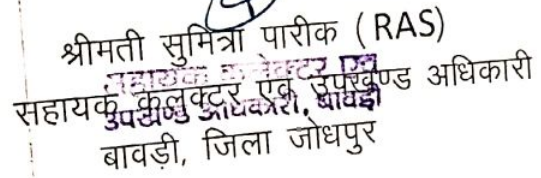 श्रीमती सुमित्रा पारीक (RAS)
सहायक कलक्टर एवं उपखण्ड अधिकारी
सहायक कलेक्टर एवं
उपखण्ड अधिकारी, बावड़ी
बावड़ी, जिला जोधपुर